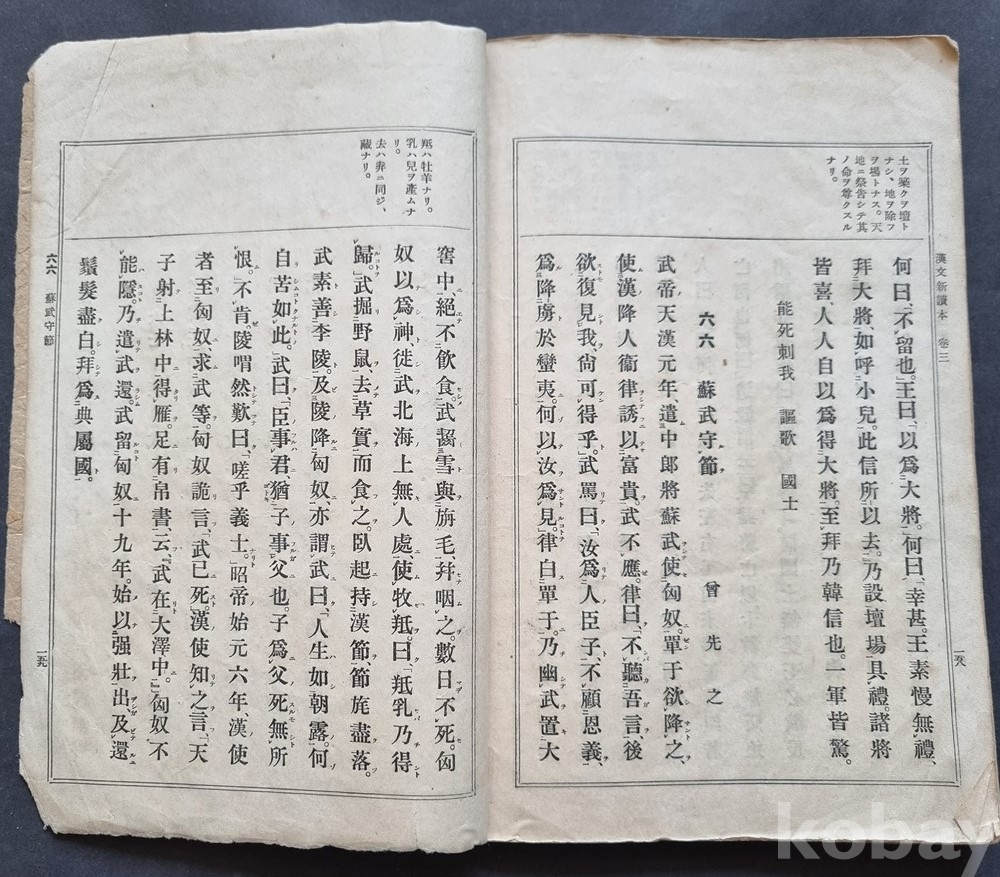 土ヲ築クヲ壇ト
ナシ、地ヲ除フ
ヲ場トナス。天
地ニ祭告シテ其
ノ命ヲ尊クスル
ナリ。
漢文新讀本 卷三
何曰、「不留也。」王曰、「以爲大將。」何曰、「幸甚。王素慢無禮、
拜大將、如呼小兒。此信所以去。」乃設壇場具禮。諸將
皆喜、人人自以爲得大將。至拜乃韓信也。一軍皆驚。
能死刺我 謳歌 國士
六六 蘇武守節 曾先之
武帝天漢元年、遣中郎將蘇武使匈奴。單于欲降之、
使漢降人衞律誘以富貴。武不應。律曰、「不聽吾言、後
欲復見我、尙可得乎。」武罵曰、「汝爲人臣子、不顧恩義、
爲降虜於蠻夷。何以汝爲見。」律白單于。乃幽武置大
一五八
羝ハ牡羊ナリ。
乳ハ兒ヲ產ムナ
リ。
去ハ弆ニ同ジ、
藏ナリ。
窖中、絕不飮食。武齧雪與旃毛、幷咽之。數日不死。匈
奴以爲神、徙武北海上無人處、使牧羝。曰、「羝乳乃得
歸。」武掘野鼠、去草實而食之。臥起持漢節、節旄盡落。
武素善李陵。及陵降匈奴、亦謂武曰、「人生如朝露。何
自苦如此。」武曰、「臣事君、猶子事父也。子爲父死無所
恨。」不肯。陵喟然歎曰、「嗟乎義士。」昭帝始元六年、漢使
者至匈奴、求武等。匈奴詭言、「武已死。」漢使知之、言、「天
子射上林中得雁。足有帛書、云、『武在大澤中。』」匈奴不
能隱。乃遣武還。武留匈奴十九年。始以强壯出、及還
鬚髮盡白。拜爲典屬國。
六六 蘇武守節
一五九
kobay